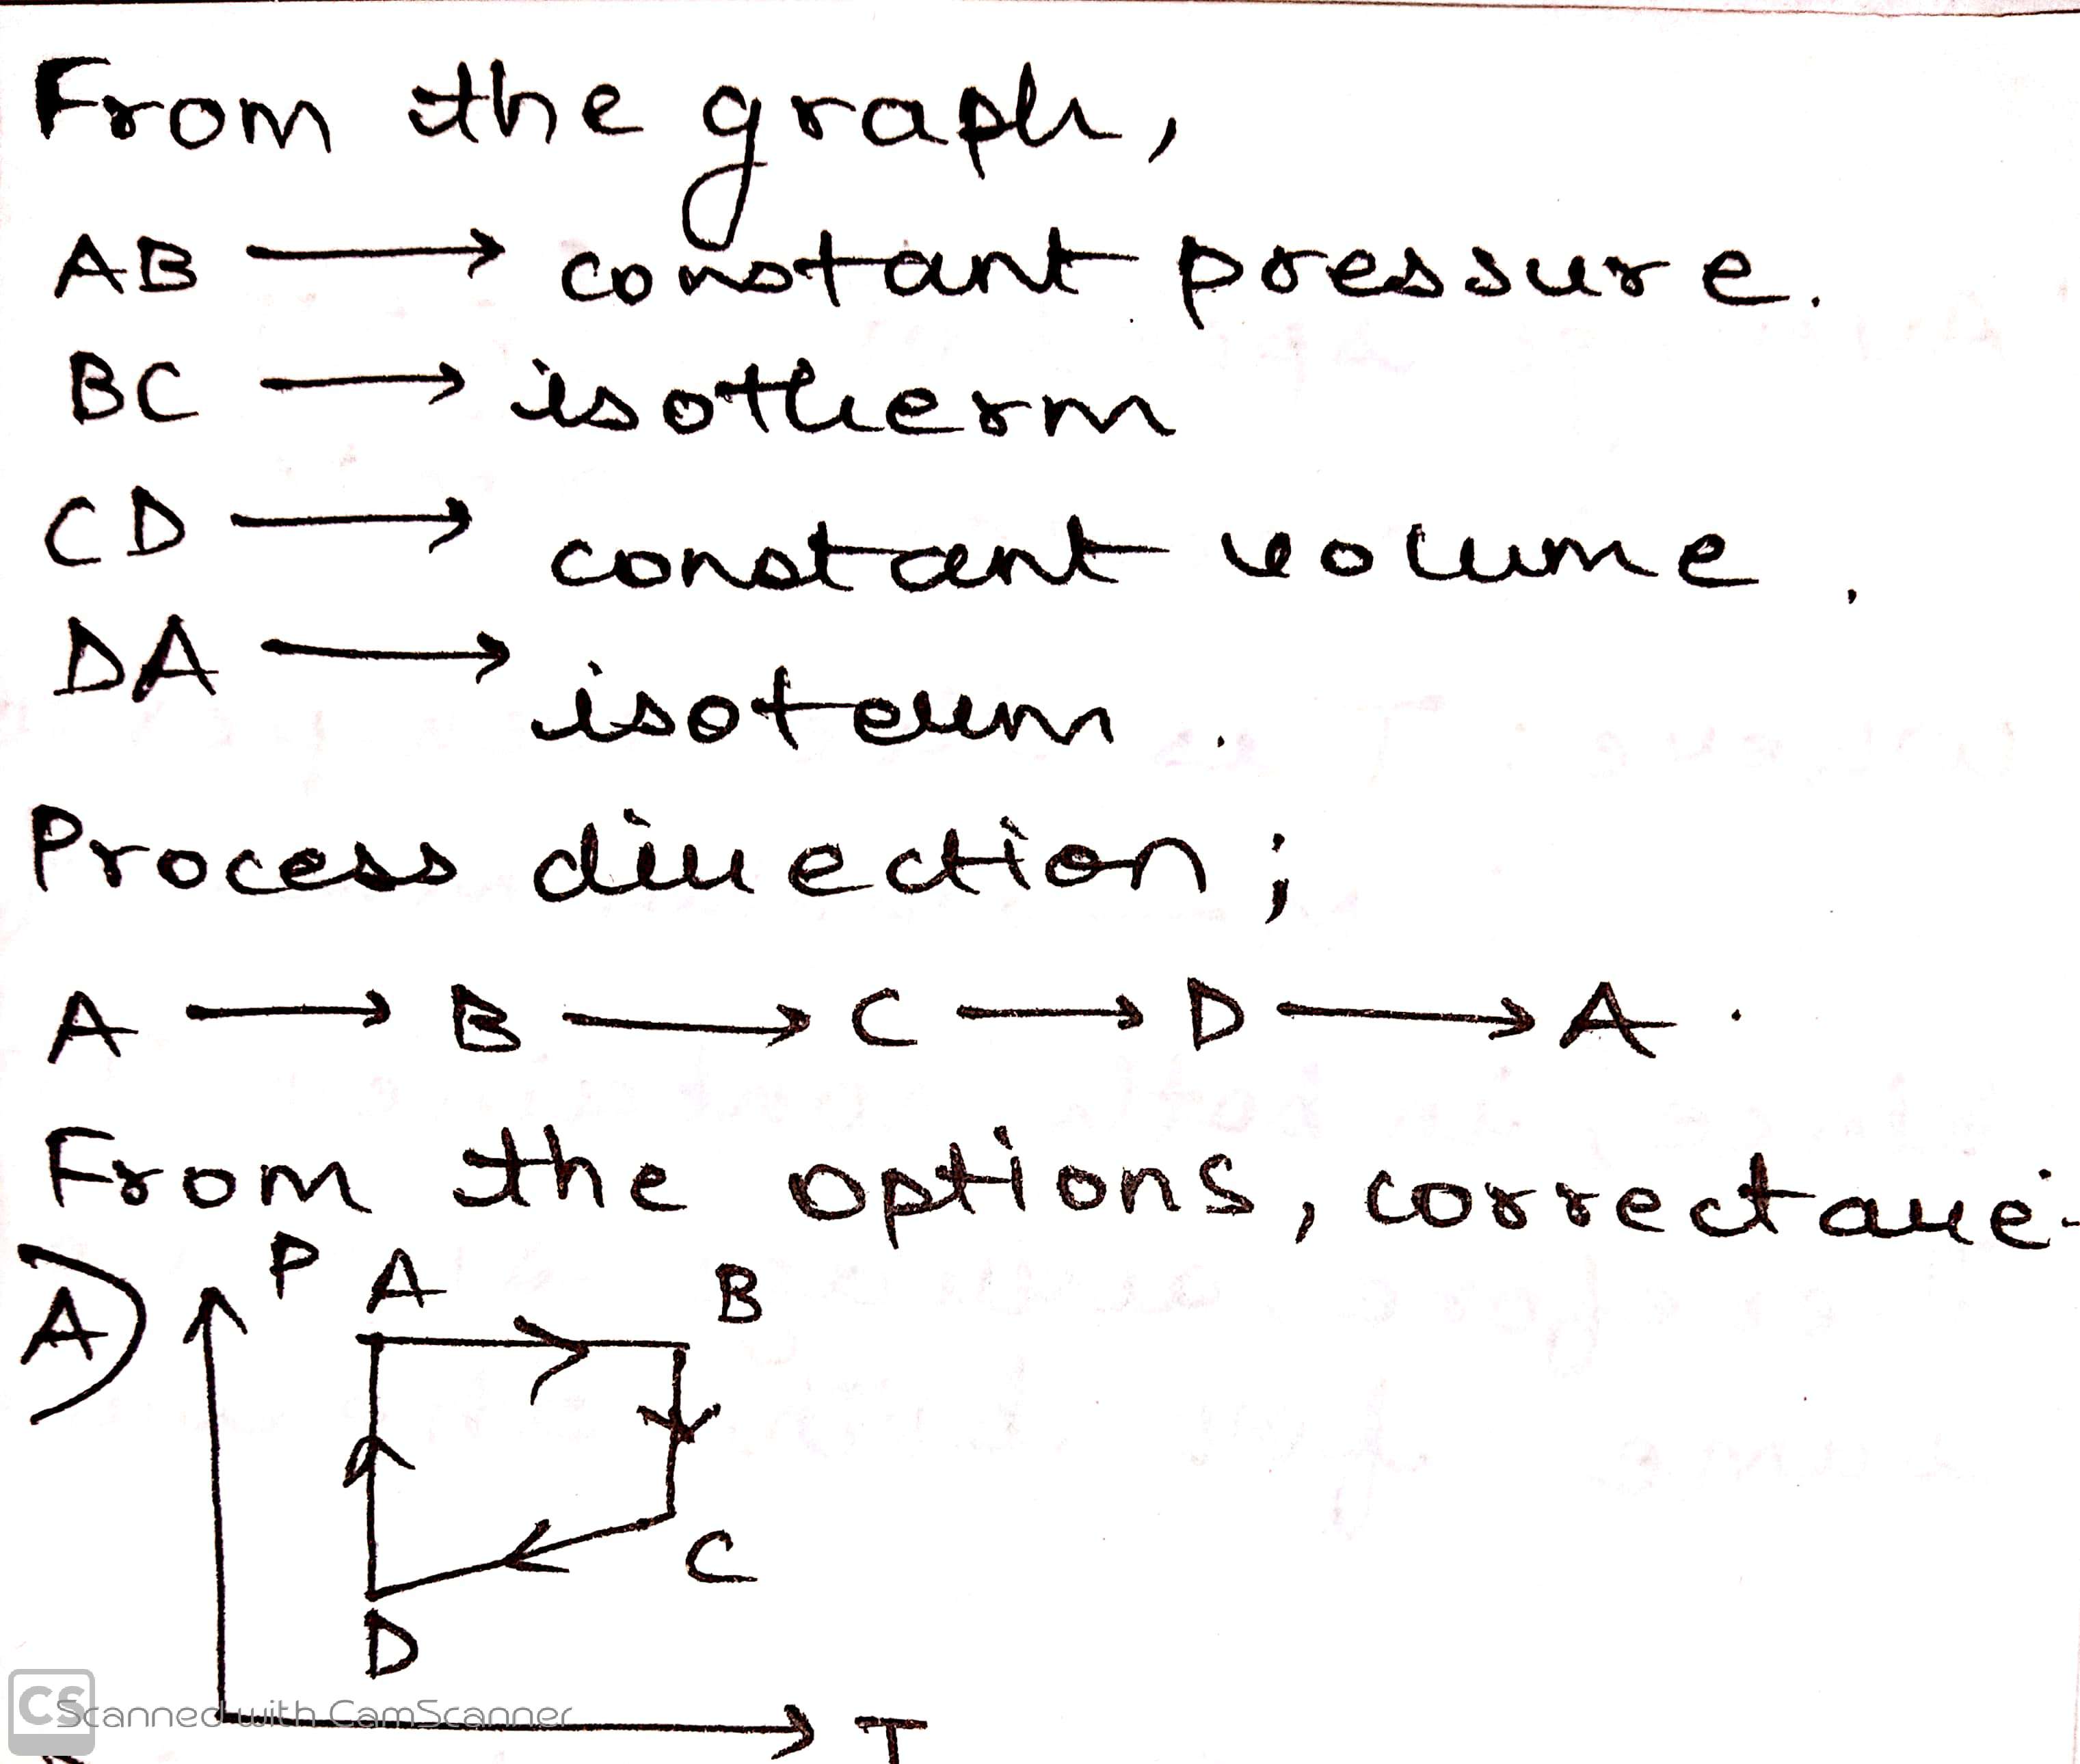 From the graph,
AB → constant pressure.
BC → isotherm
CD → constant volume.
DA → isoterm.
Process direction;
A → B → C → D → A.
From the options, correct are:-
A) P A B
C
D
T
CS Scanned with CamScanner